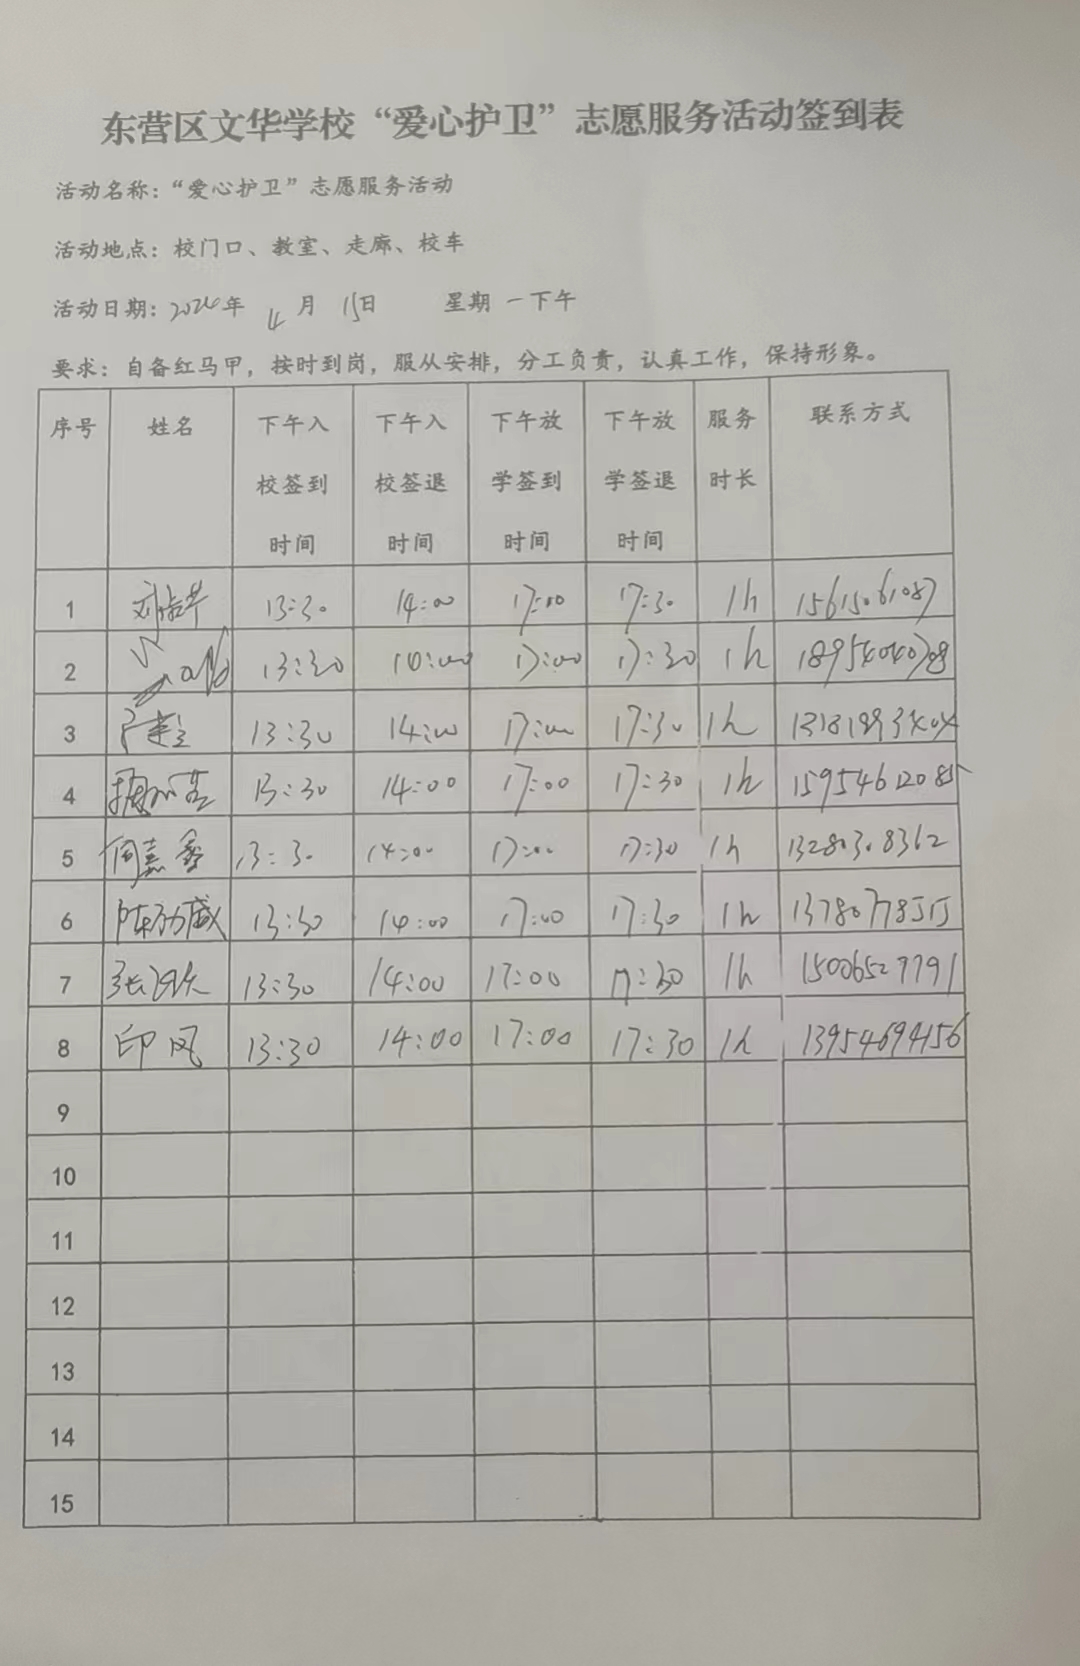 东营区文华学校“爱心护卫”志愿服务活动签到表
活动名称：“爱心护卫”志愿服务活动
活动地点：校门口、教室、走廊、校车
活动日期：2024年 4月 15日 星期 一下午
要求：自备红马甲，按时到岗，服从安排，分工负责，认真工作，保持形象。
序号 姓名 下午入校签到时间 下午入校签退时间 下午放学签到时间 下午放学签退时间 服务时长 联系方式
1 13:30 14:00 17:00 17:30 1h 15615061087
2 13:30 14:00 17:00 17:30 1h 18954040708
3 13:30 14:00 17:00 17:30 1h
4 13:30 14:00 17:00 17:30 1h 15954612085
5 周嘉鑫 13:30 14:00 17:00 17:30 1h 13280308362
6 13:30 14:00 17:00 17:30 1h 13780778515
7 13:30 14:00 17:00 17:30 1h 15006527791
8 印风 13:30 14:00 17:00 17:30 1h 13954694156
9
10
11
12
13
14
15